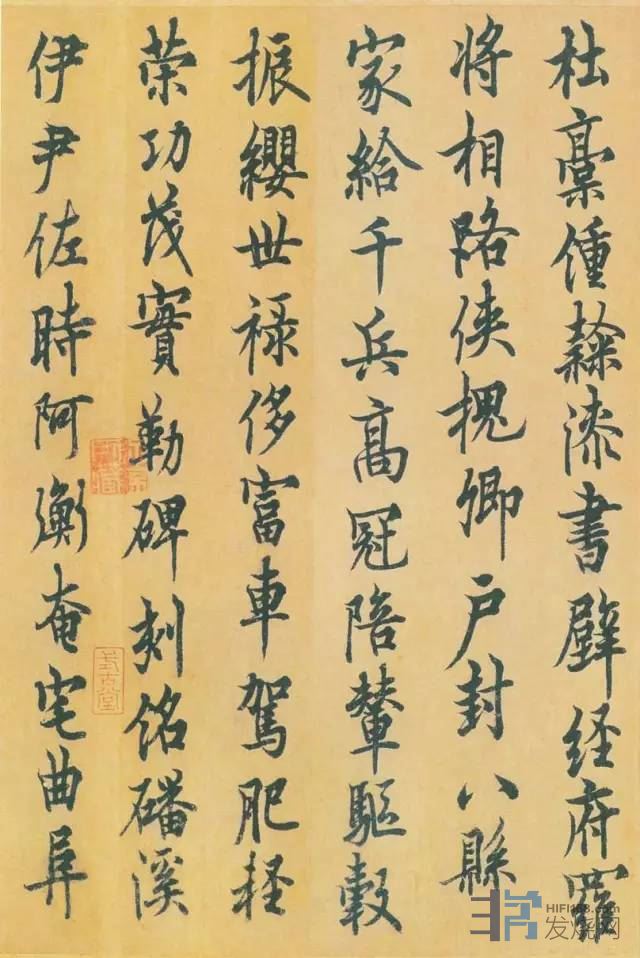 杜稾鍾隸漆書壁経府羅
将相路侠槐卿户封八縣
家給千兵髙冠陪輦驅轂
振纓世禄侈富車駕肥軽
策功茂實勒碑刻銘磻溪
伊尹佐時阿衡奄宅曲阜
式古堂
HIFI168.com
发烧网